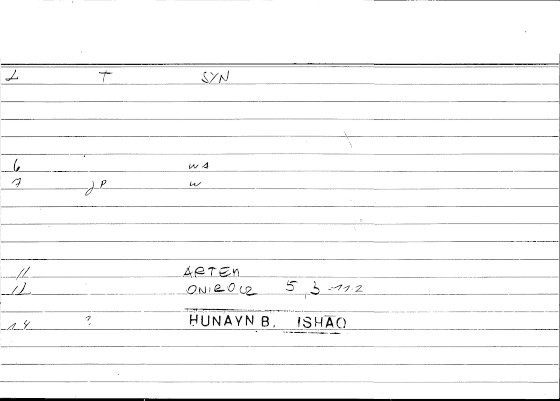 L T SYN
6 w s
7 JP w
11 ARTEM
12 ONIROCR 5, 3 -112
14 ? HUNAYN B. ISHAQ